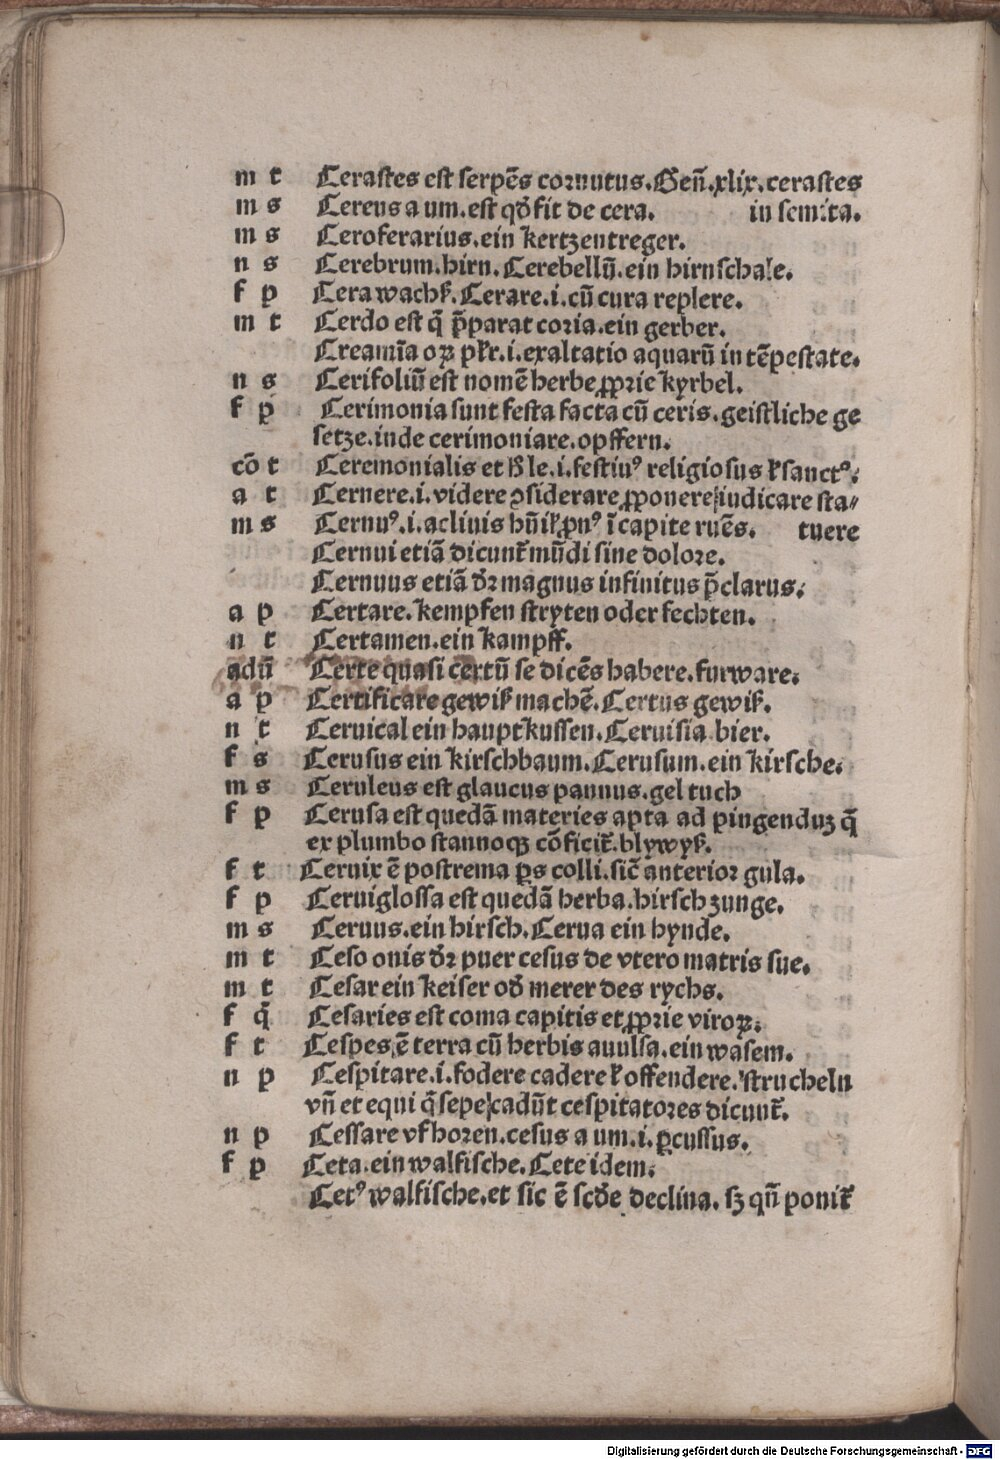 m t Cerastes est serpēs cornutus. Geñ. xlix. cerastes
m s Cereus a um. est qđ fit de cera. in semita.
m s Ceroferarius. ein kertzentreger.
n s Cerebrum. hirn. Cerebellū. ein hirnschale.
f p Cera wachß. Cerare .i. cū cura replere.
m t Cerdo est q̄ p̄parat coria. ein gerber.
Creamīa oꝝ pl̄r .i. exaltatio aquarū in tēpestate.
n s Cerifoliū est nomē herbe ꝓprie kyrbel.
f p Cerimonia sunt festa facta cū ceris. geistliche ge
setze. inde cerimoniare. opffern.
cō t Ceremonialis et hꝰ le .i. festiuꝰ religiosus ł sanctꝰ.
a t Cernere .i. videre ↄsiderare ꝓponere iudicare sta⸗
m s Cernuꝰ .i. acliuis hūił ꝓnꝰ ī capite ruēs. tuere
Cernui etiā dicunt̄ mūdi sine dolore.
Cernuus etiā dr̄ magnus infinitus p̄clarus.
a p Certare. kempfen stryten oder fechten.
n t Certamen. ein kampff.
adū Certe quasi certū se dicēs habere. furware.
a p Certificare gewiß machē. Certus gewiß.
n t Ceruical ein hauptkussen. Ceruisia bier.
f s Cerusus ein kirschbaum. Cerusum. ein kirsche.
m s Ceruleus est glaucus pannus. gel tuch
f p Cerusa est quedā materies apta ad pingenduȝ q̄
ex plumbo stannoqȝ cōficit̄. blywyß.
f t Ceruix ē postrema ꝑs colli. sic̄ anterior gula.
f p Ceruiglossa est quedā herba. hirschzunge.
m s Ceruus. ein hirsch. Cerua ein hynde.
m t Ceso onis dr̄ puer cesus de vtero matris sue.
m t Cesar ein keiser ođ merer des rychs.
f q̄ Cesaries est coma capitis et ꝓprie viroꝝ.
f t Cespes ē terra cū herbis auulsa. ein wasem.
n p Cespitare .i. fodere cadere ł offendere. strucheln
vñ et equi q̄ sepe cadūt cespitatores dicunt̄.
n p Cessare vfhoren. cesus a um .i. ꝑcussus.
f p Ceta. ein walfische. Cete idem.
Cetꝰ walfische. et sic ē scđe declina. sȝ qn̄ ponit̄

Digitalisierung gefördert durch die Deutsche Forschungsgemeinschaft - DFG